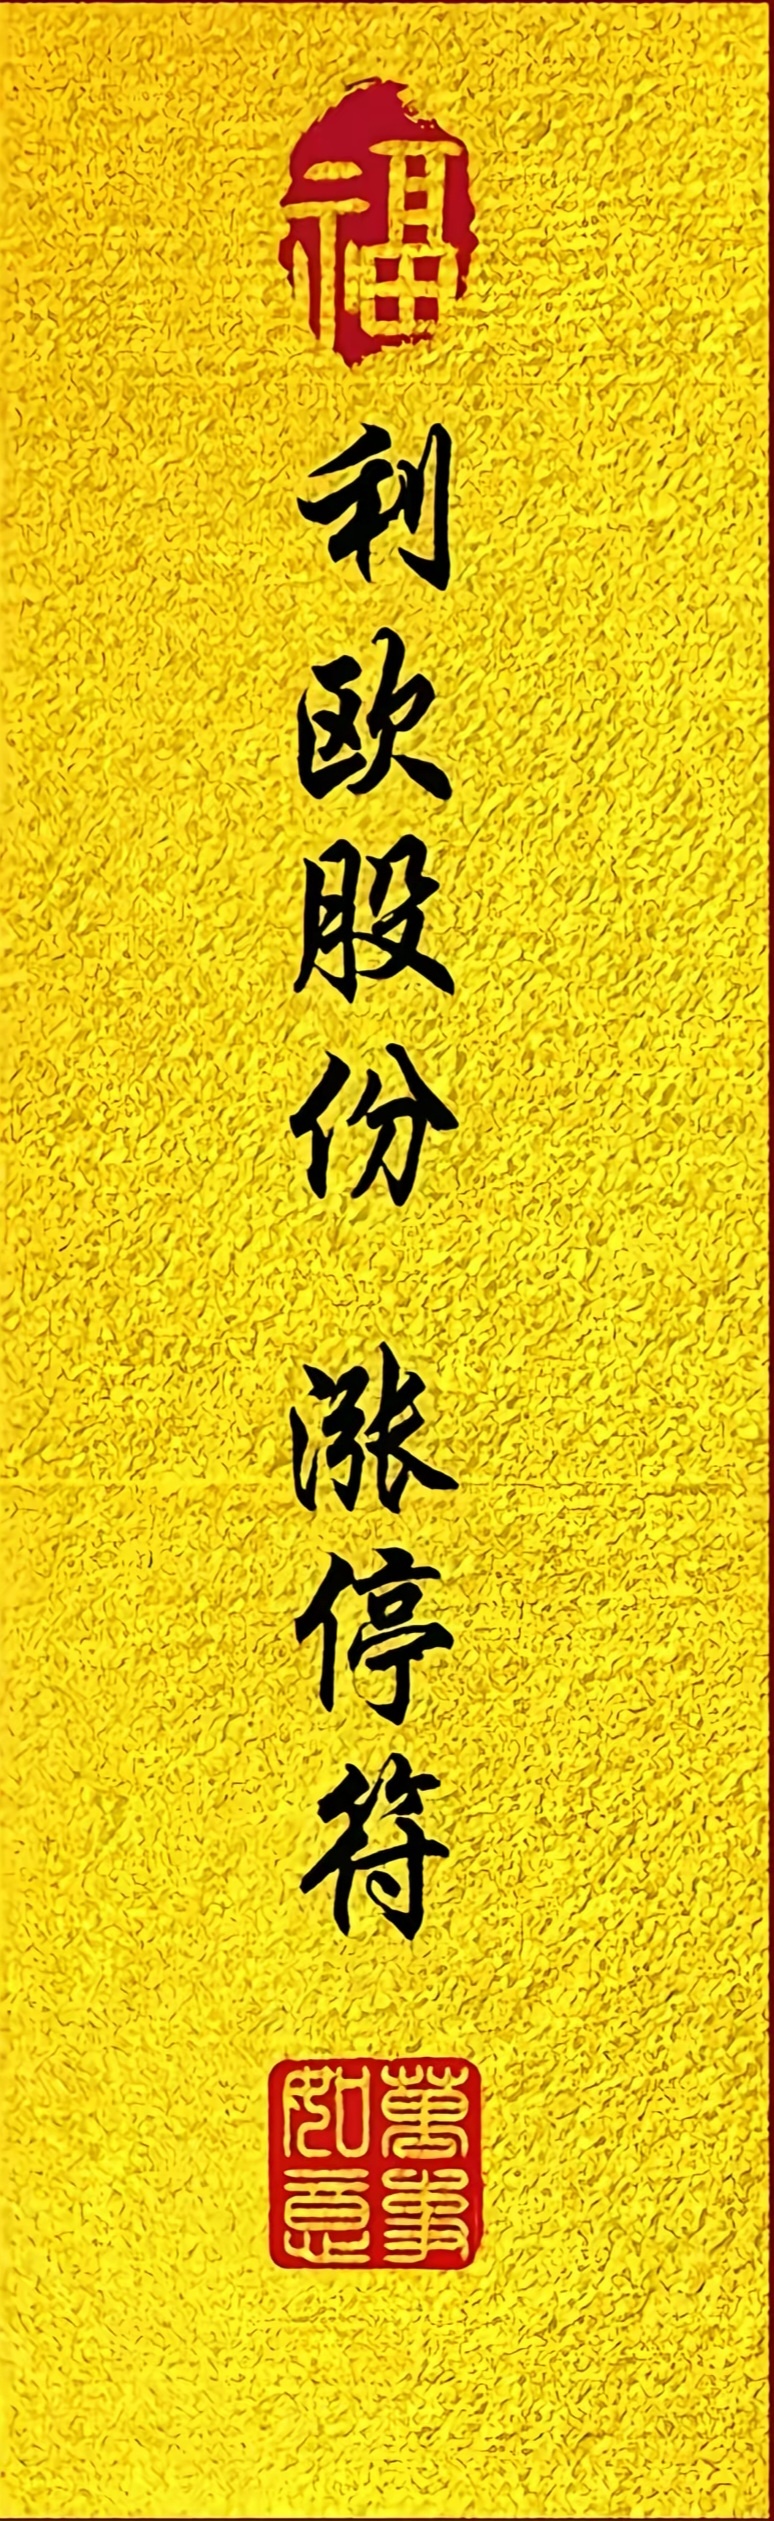 福
利欧股份 涨停符
萬事如意